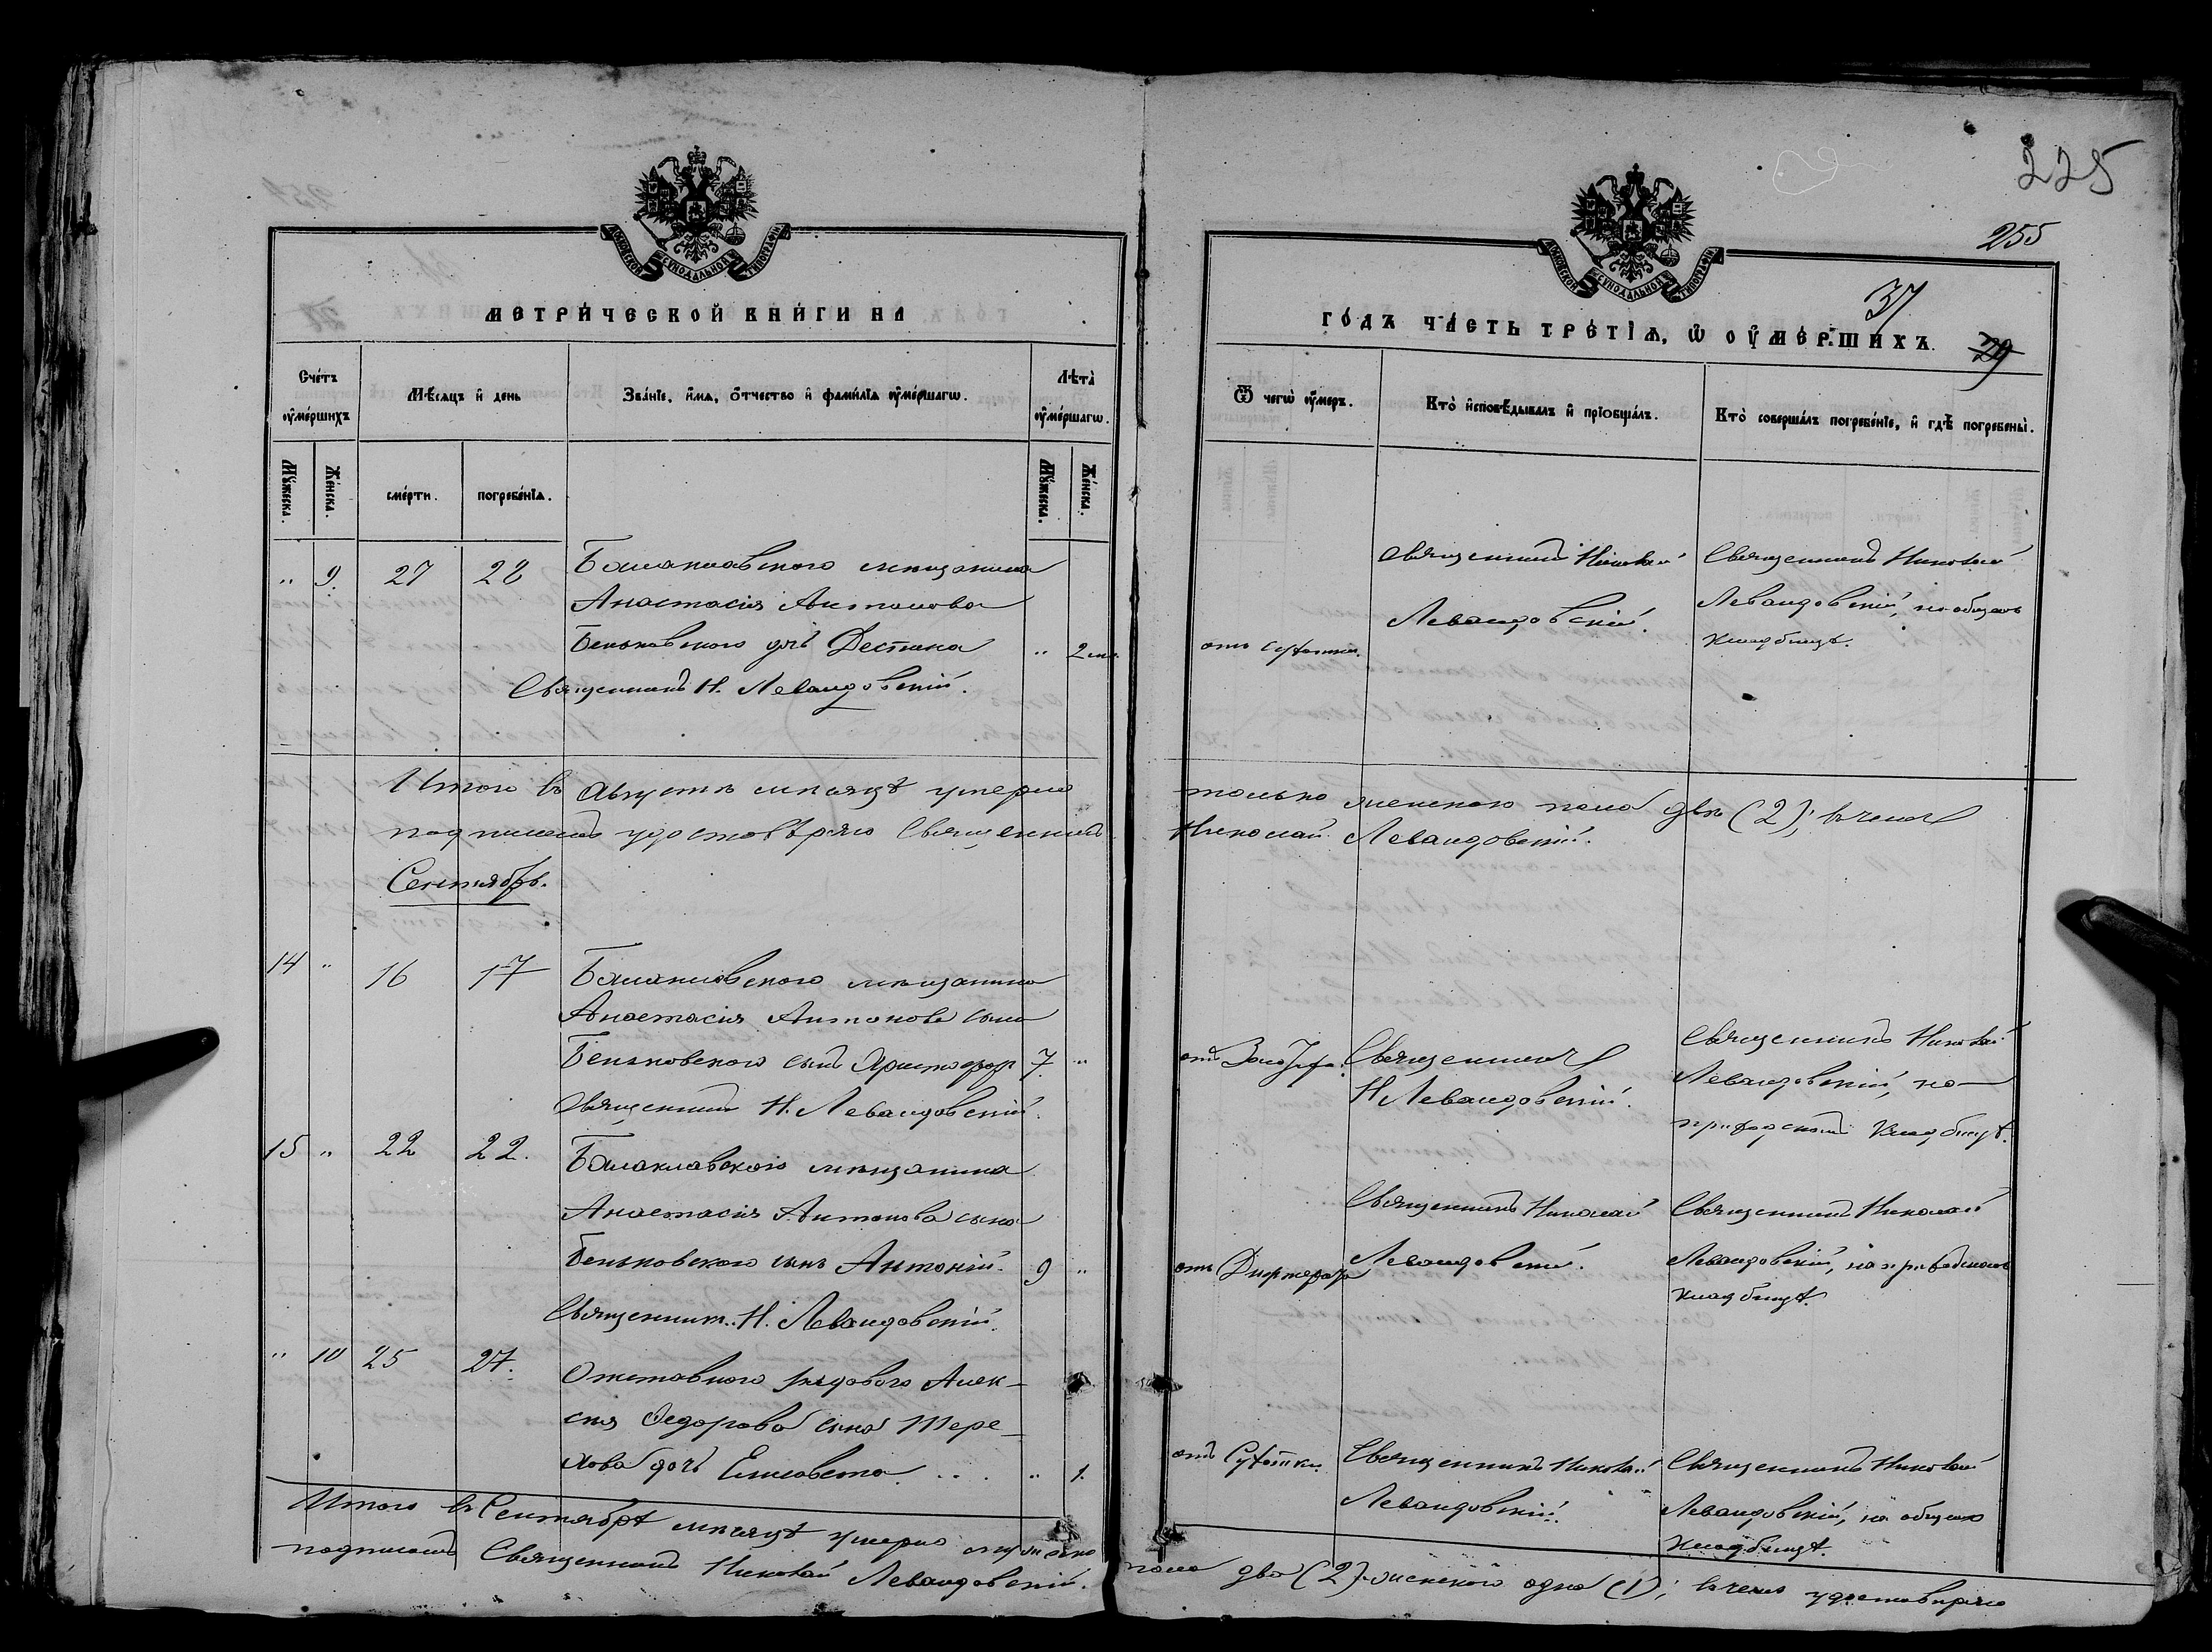 225
255
37
29
МОСКОВСКОЙ СУНОДАЛЬНОЙ ТИПОГРАФІИ
МОСКОВСКОЙ СУНОДАЛЬНОЙ ТИПОГРАФІИ
МЕТРИ́ЧЕСКОЙ КНИ́ГИ НА
ГО́ДЪ ЧА́СТЬ ТРЕ́ТІѦ, Ѡ ОУ҆МЕ́РШИХЪ.
Сче́тъ оу҆ме́ршихъ
Мѣ́сяцъ и҆ день
Зва́нїе, и҆́мѧ, ѻ҆́тчество и҆ фами́лїѧ оу҆ме́ршагѡ.
Лѣта̀ оу҆ме́ршагѡ.
Ѿ чегѡ̀ оу҆́меръ.
Кто̀ и҆сповѣ́дывалъ и҆ прїѻбща́лъ.
Кто̀ соверша́лъ погребе́нїе, и҆ гдѣ̀ погребены̀.
Мꙋ́жеска.
Же́нска.
сме́рти.
погребе́нїѧ.
Мꙋ́жеска.
Же́нска.
" 9. 27 28 Балаклавского мѣщанина
Анастасія Антонова
Беньковского дчь Деспина " 2 мѣс.
Священникъ Н. Левандовскій.
отъ сухотки.
Священникъ Николай
Левандовскій.
Священникъ Николай
Левандовскій, на общемъ
кладбищѣ.
Итого въ Августѣ мѣсяцѣ умерло только женскаго пола двѣ (2); въ чемъ
подписомъ удостовѣряю Священникъ Николай Левандовскій.
Сентябрь.
14 " 16 17 Балаклавского мѣщанина
Анастасія Антонова сына
Беньковского сынъ Христофор 7. "
Священникъ Н. Левандовскій.
отъ
Священникъ
Н Левандовскій.
Священникъ Николай
Левандовскій, на
приходскомъ кладбищѣ.
15 " 22 22. Балаклавского мѣщанина
Анастасія Антонова сына
Беньковского сынъ Антоній. 9 "
Священник. Н. Левандовскій.
отъ Дифтерита
Священникъ Николай
Левандовскій.
Священникъ Николай
Левандовскій, на приходскомъ
кладбищѣ.
" 10 25 27. Отставного рядового Алек-
сѣя Федорова сына Тере-
хова дочь Елисавета . . . " 1.
отъ Сухотки.
Священникъ Николай
Левандовскій.
Священникъ Николай
Левандовскій, на общемъ
кладбищѣ.
Итого въ Сентябрѣ мѣсяцѣ умерло мужеска пола два (2) женского одна (1); въ чемъ удостовѣряю
подписомъ Священникъ Николай Левандовскій.